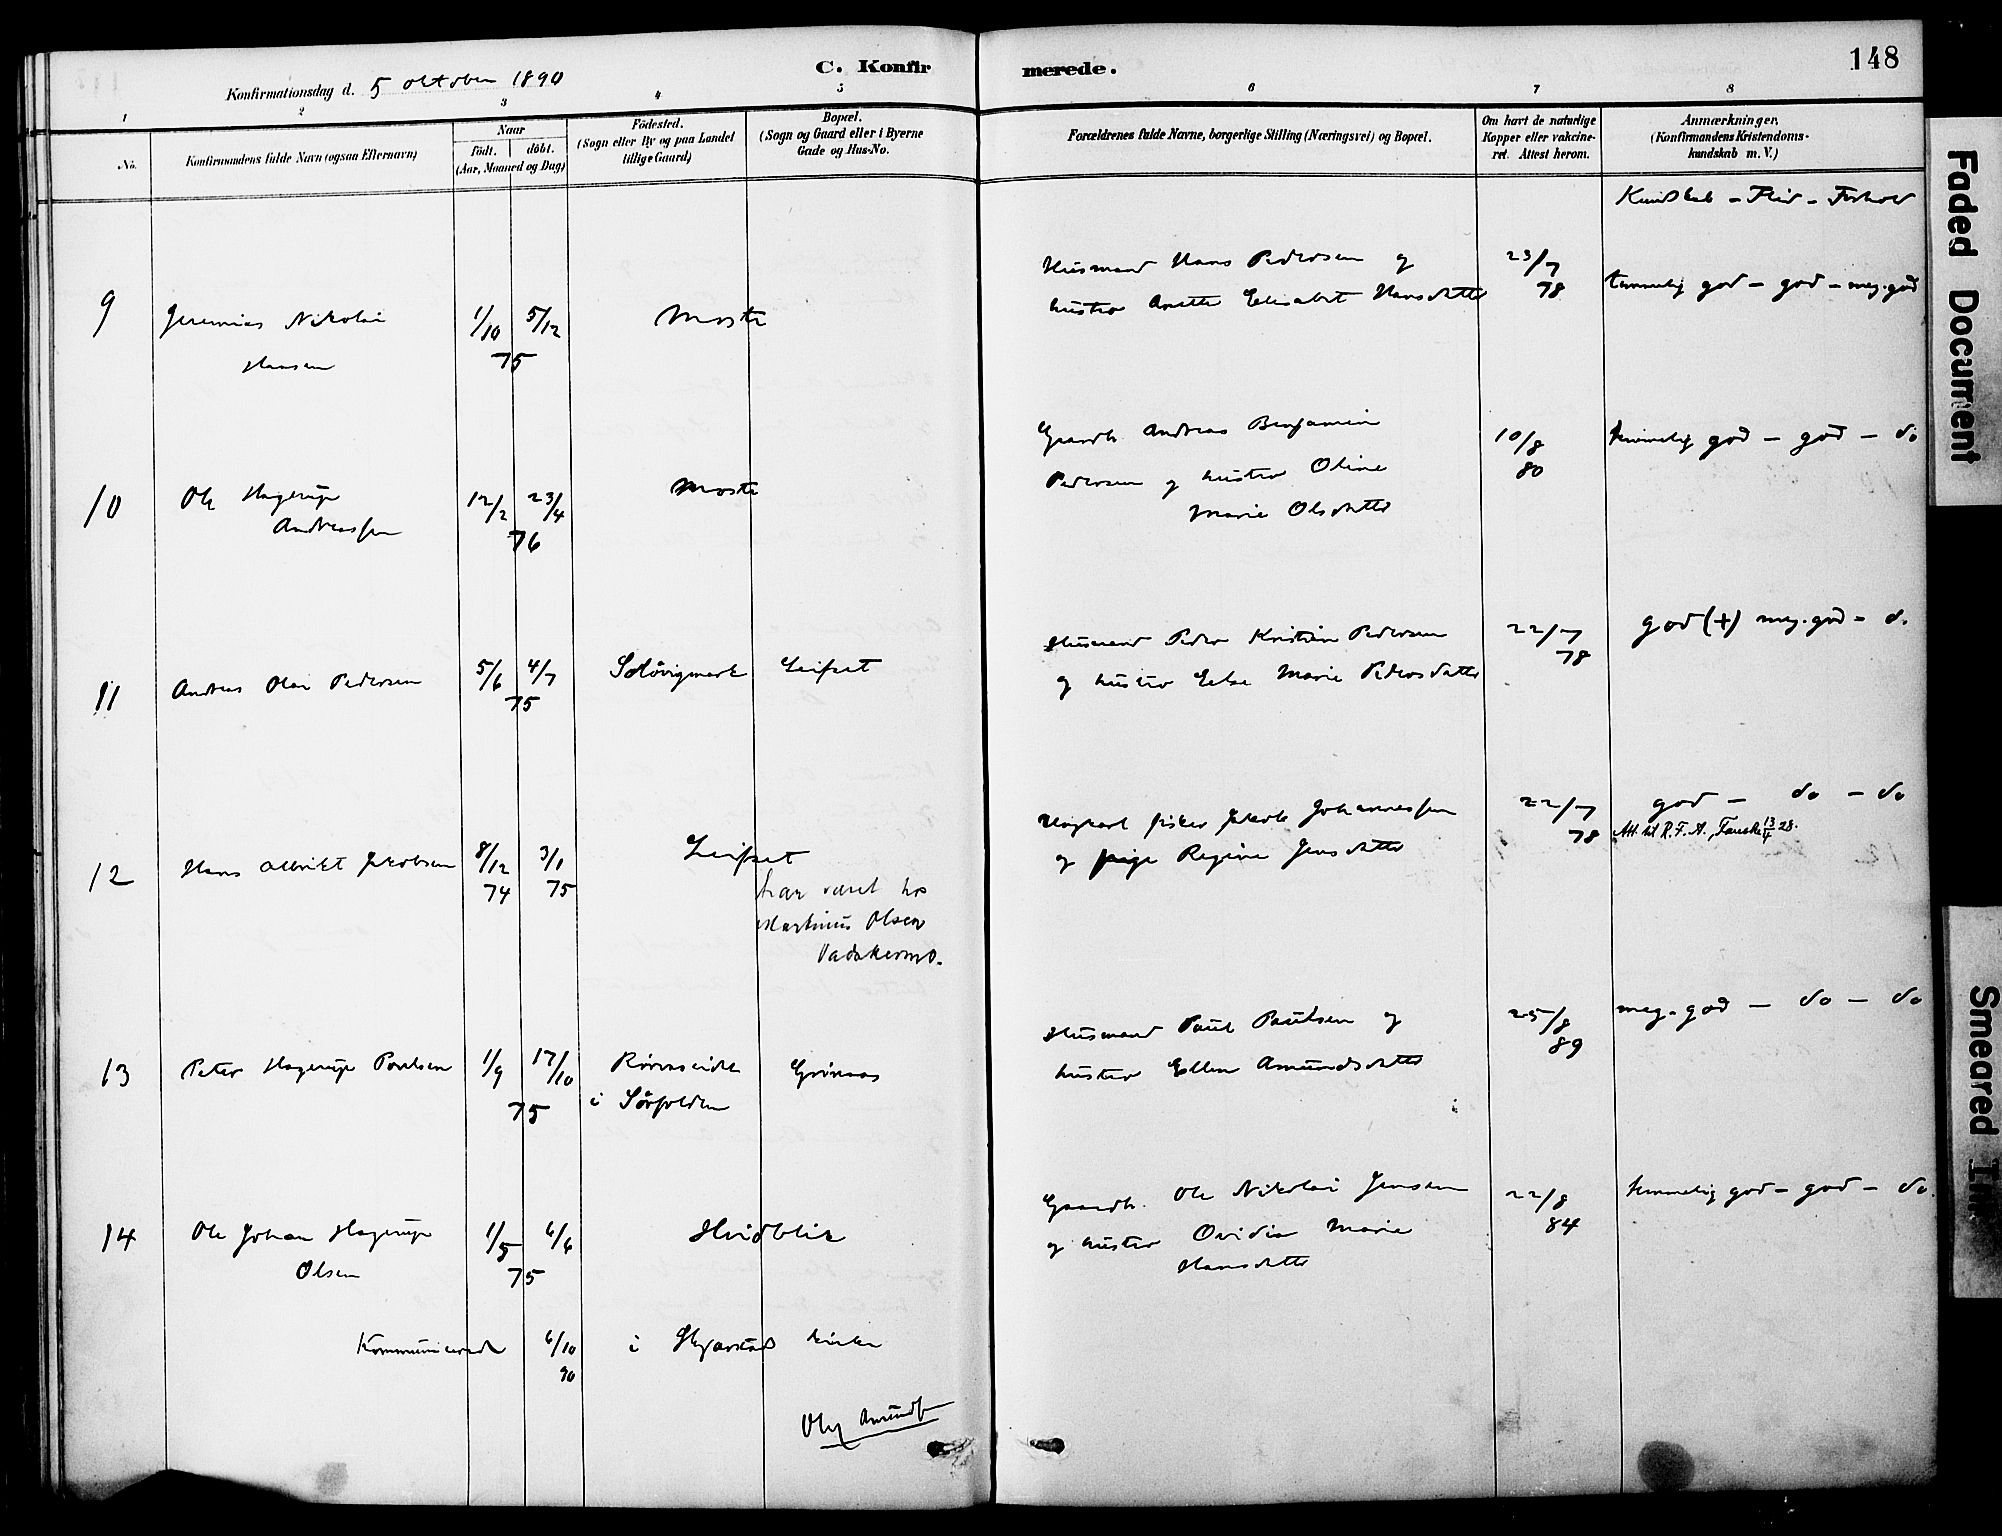 C. Konfirmerede.
148
Konfirmationsdag d. 5 oktober 1890
1 2 3 4 5 6 7 8
No.
Konfirmandens fulde Navn (ogsaa Efternavn)
Naar
födt. döbt.
(Aar, Maaned og Dag)
Födested.
(Sogn eller By og paa Landet
tillige Gaard)
Bopæl.
(Sogn og Gaard eller i Byerne
Gade og Hus-No.
Forældrenes fulde Navne, borgerlige Stilling (Næringsvei) og Bopæl.
Om havt de naturlige
Kopper eller vakcine-
ret. Attest herom.
Anmærkninger.
(Konfirmandens Kristendoms-
kundskab m. V.)
Kundskab - Flid - Forhold
9 Jeremias Nikolai
Hansen
1/10 5/12
75
Moste
Husmand Hans Pedersen og
hustro Anette Elisabet Hansdatter
23/7
78
temmelig god - god - meg. god
10 Ole Hagerup
Andreassen
12/2 23/4
76
Moste
Gaardb. Andreas Benjamin
Pedersen og hustro Oline
Marie Olsdatter
10/8
80
temmelig god - god - do
11 Andreas Olai Pedersen
5/6 4/7
75
Leifset
Husmand Peder Kristian Pedersen
og hustro Else Marie Pedersdatter
22/7
78
god (+) meg. god - do
12 Hans Albrikt Jakobsen
8/12 3/1
74 75
Leifset
har været hos
Martinus Olsen
Vadskermo.
Ungkarl fisker Jakob Johannessen
og pige Regine Jensdatter
22/7
78
god - do - do
Att. til R.F.A., Fauske 13/5 28.
13 Peter Hagerup Paulsen
1/9 17/10
75
i Sørfolden
Grönaas
Husmand Paul Paulsen og
hustro Ellen Amundsdatter
25/8
89
meg. god - do - do
14 Ole Johan Hagerup
Olsen
1/5 6/6
75
Hvidblik
Gaardb. Ole Nikolai Jensen
og hustro Ovidia Marie
Hansdatter
22/8
84
temmelig god - god - do.
Kommunicerede 6/10 90 i Skjerstad kirke
Faded Document
Smeared Ink